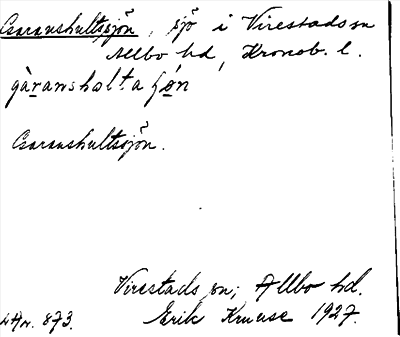 Garanshultssjön, sjö i Virestads sn
Allbo hd, Kronob. l.
gàranshol.ta ʃøn
Garanshultssjön.
Virestads sn; Allbo hd.
Ltr. 873. Erik Kruuse 1927.